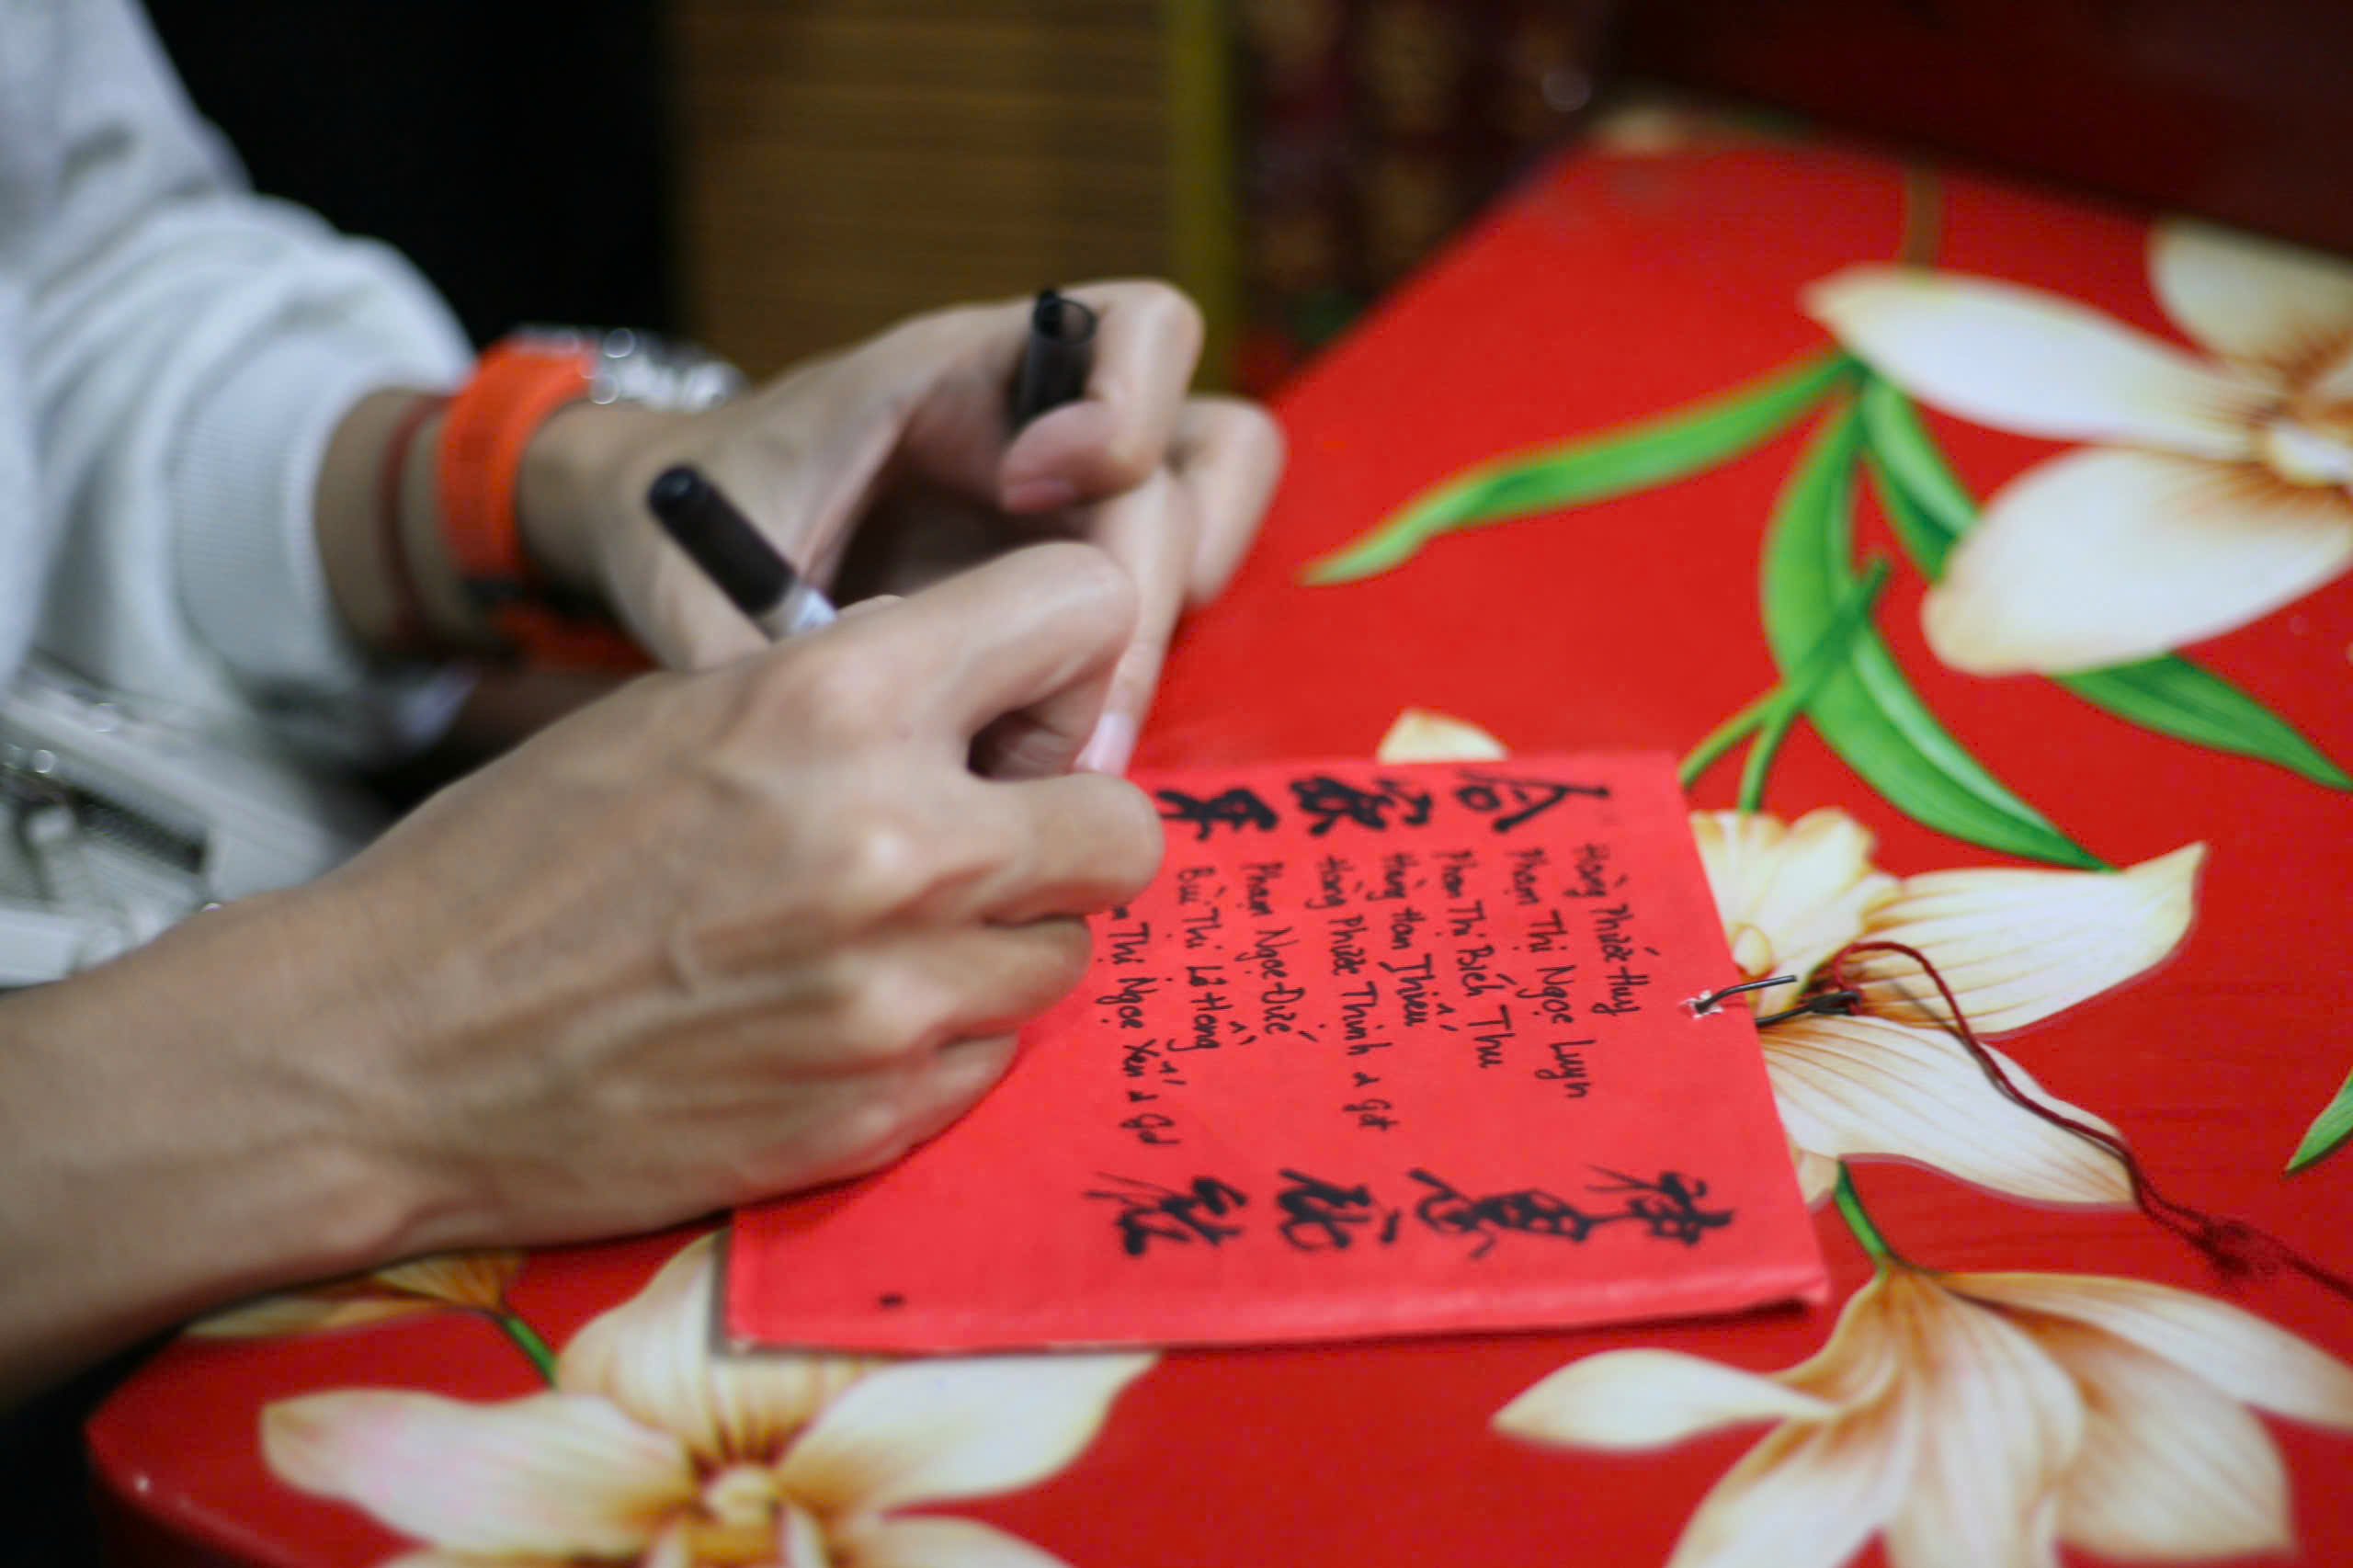 合家平
Hoàng Phước Huy
Phạm Thị Ngọc Luyn
Phạm Thị Bích Thu
Hoàng Hoan Thiếu
Hoàng Phước Thịnh & Gđ
Phạm Ngọc Đức
Bùi Thị Lệ Hồng
Thị Ngọc Yến & Gđ